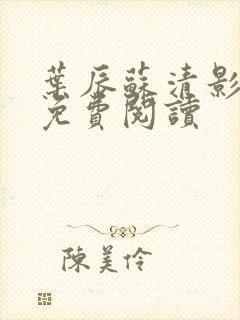 葉辰蘇清影
免費閱讀
陳美伶